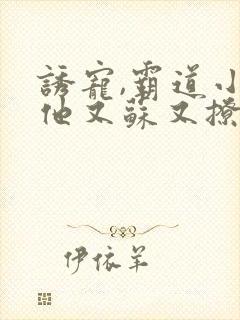 誘寵,霸道小
他又蘇又撩
伊依羊